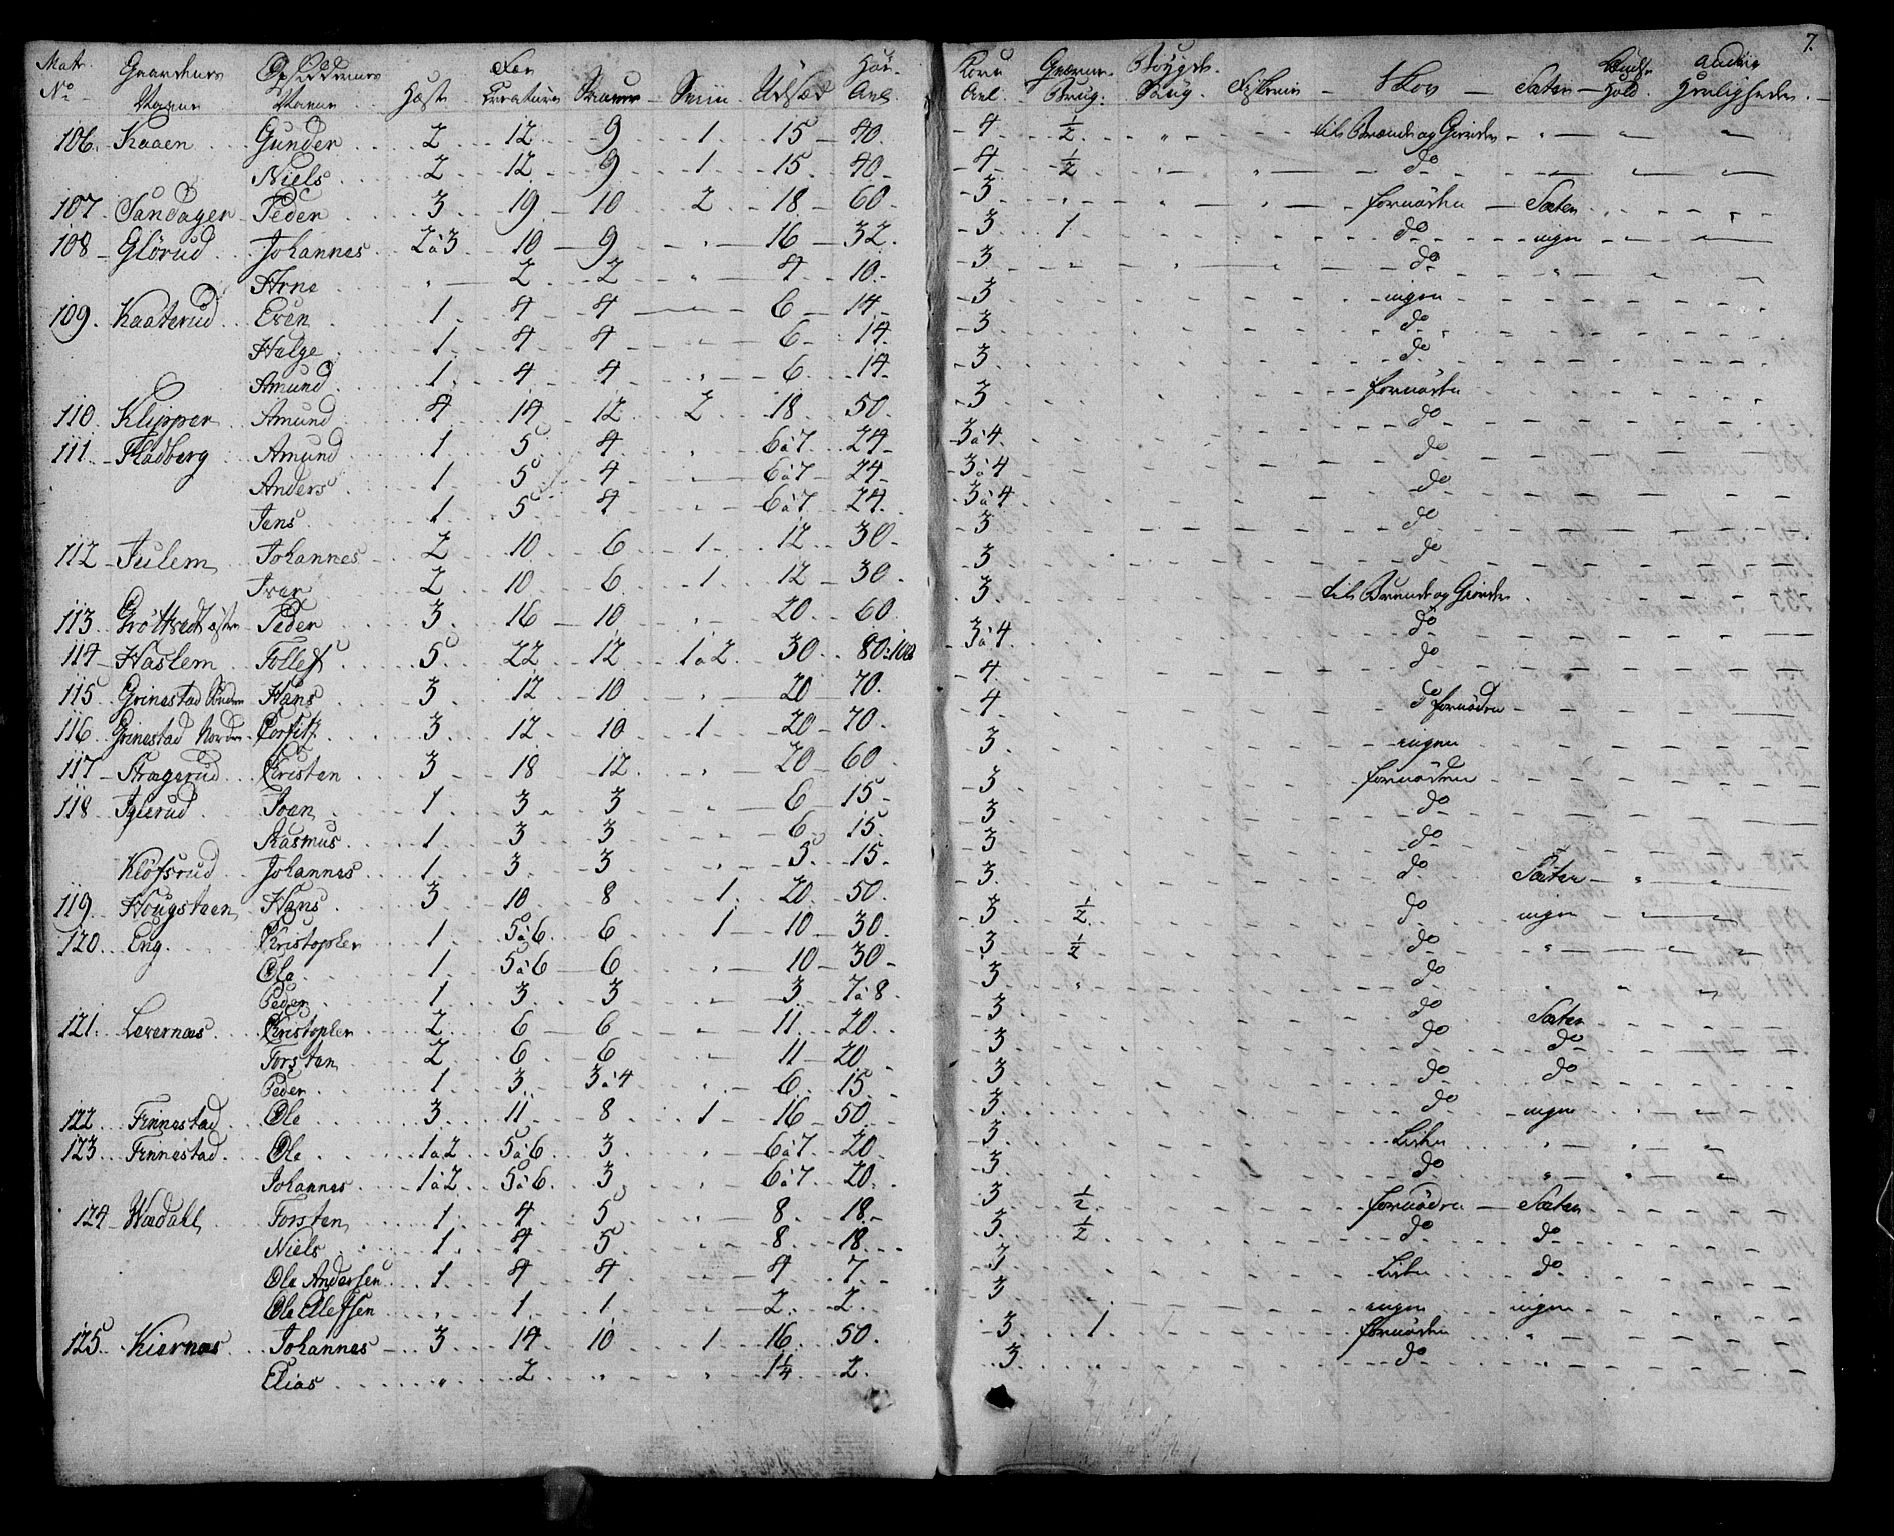 7.
Matr. No Gaardenes Navne Opsiddernes Navne Heste Fæe Creature Svin Udsæd Høe Avl. Korn Avl. Brug. Bøygde Skov Sæter andre Herligheder.
106. Kaaen Gunder 2 12 9 1 15 40. 4 1/2 " til Brænde og Gierder
Niels 2 12 9 1 15 40 4 1/2 do
107. Sandager Peder 3 19 10 2 18 60. 3 fornøden Sæter
108 Glørud Johannes 2 à 3 10 9 16 32. 3 1 do ingen
Arne 2 2 4 10. 3 do
109. Kaaterud Even 1 4 4 6 14 3 ingen
Helge 1 4 4 6 14 3 do
Amund 1. 4 4 6 14 3 do
110. Klipper Amund 4 14 12 2 18 50. 3 fornøden
111. Fladberg Amund 1 5 4 6 à 7 24 3 à 4. do
Anders 1 5 4 6 à 7 24 3 à 4 do
Jens 1 5 4 6 à 7 24. 3 à 4 do
112 Julem Johannes 2 10 6 1 12 30 3 do
Iver 2 10 6 1 12 30. 3 do
113. Peder 3. 16 10 20 60. 3 til Brænde og Gierder
114 Haslem Tollef 5. 22 12 1 à 2 30 80 à 100 3 à 4 do
115 Grinestad Hans 3 12 10 20 70. 4 do
116. Grinestad Nordre 3 12 10 1 20 70. 4 do fornøden
117 Kristen 3 18 12 20 60. 3 ingen
118 Iglerud Joen 1 3 3 6 15 3 fornøden
Rasmus 1 3 3 6 15. 3 do
Kløfsrud Johannes 1 3 3 5. 15. 3 do
119. Hougsteen Hans 3 10 8 1. 20 50. 3 do Sæter
120. Eng Kristopher 1 5 à 6 6 1 10 30. 3 1/2 do ingen
Ole 1 5 à 6 6 10 30 3 1/2 do
Peder 1 3 3 3 7 à 8. 3 do
121. Levernæs Kristopher 2 6 6 11 20 3 do Sæter
Torsten 2 6 6 11 20 3 do do
Peder 1 3 3 à 4 6 15 3 do do
122 Finnestad Ole 3 11 8 1 16 50 3 do ingen
123. Finnestad Ole 1 à 2 5 à 6 3 6 à 7 20 3
Johannes 1 à 2 5 à 6 3 6 à 7 20. 3 do
124 Wadahl Torsten 1 4 5 8 18. 3 1/2 fornøden Sæter
Niels 1 4 5 8 18 3 1/2 do do
Ole Andersen 1 4 4 4 7 3 do
Ole Ellefsen 1 1 2. 2 3 ingen ingen
125. Kiernæs Johannes 3 14 10 1 16 50. 3 1 fornøden
Elias " 2 " " 1 1/4 2. 3 " do